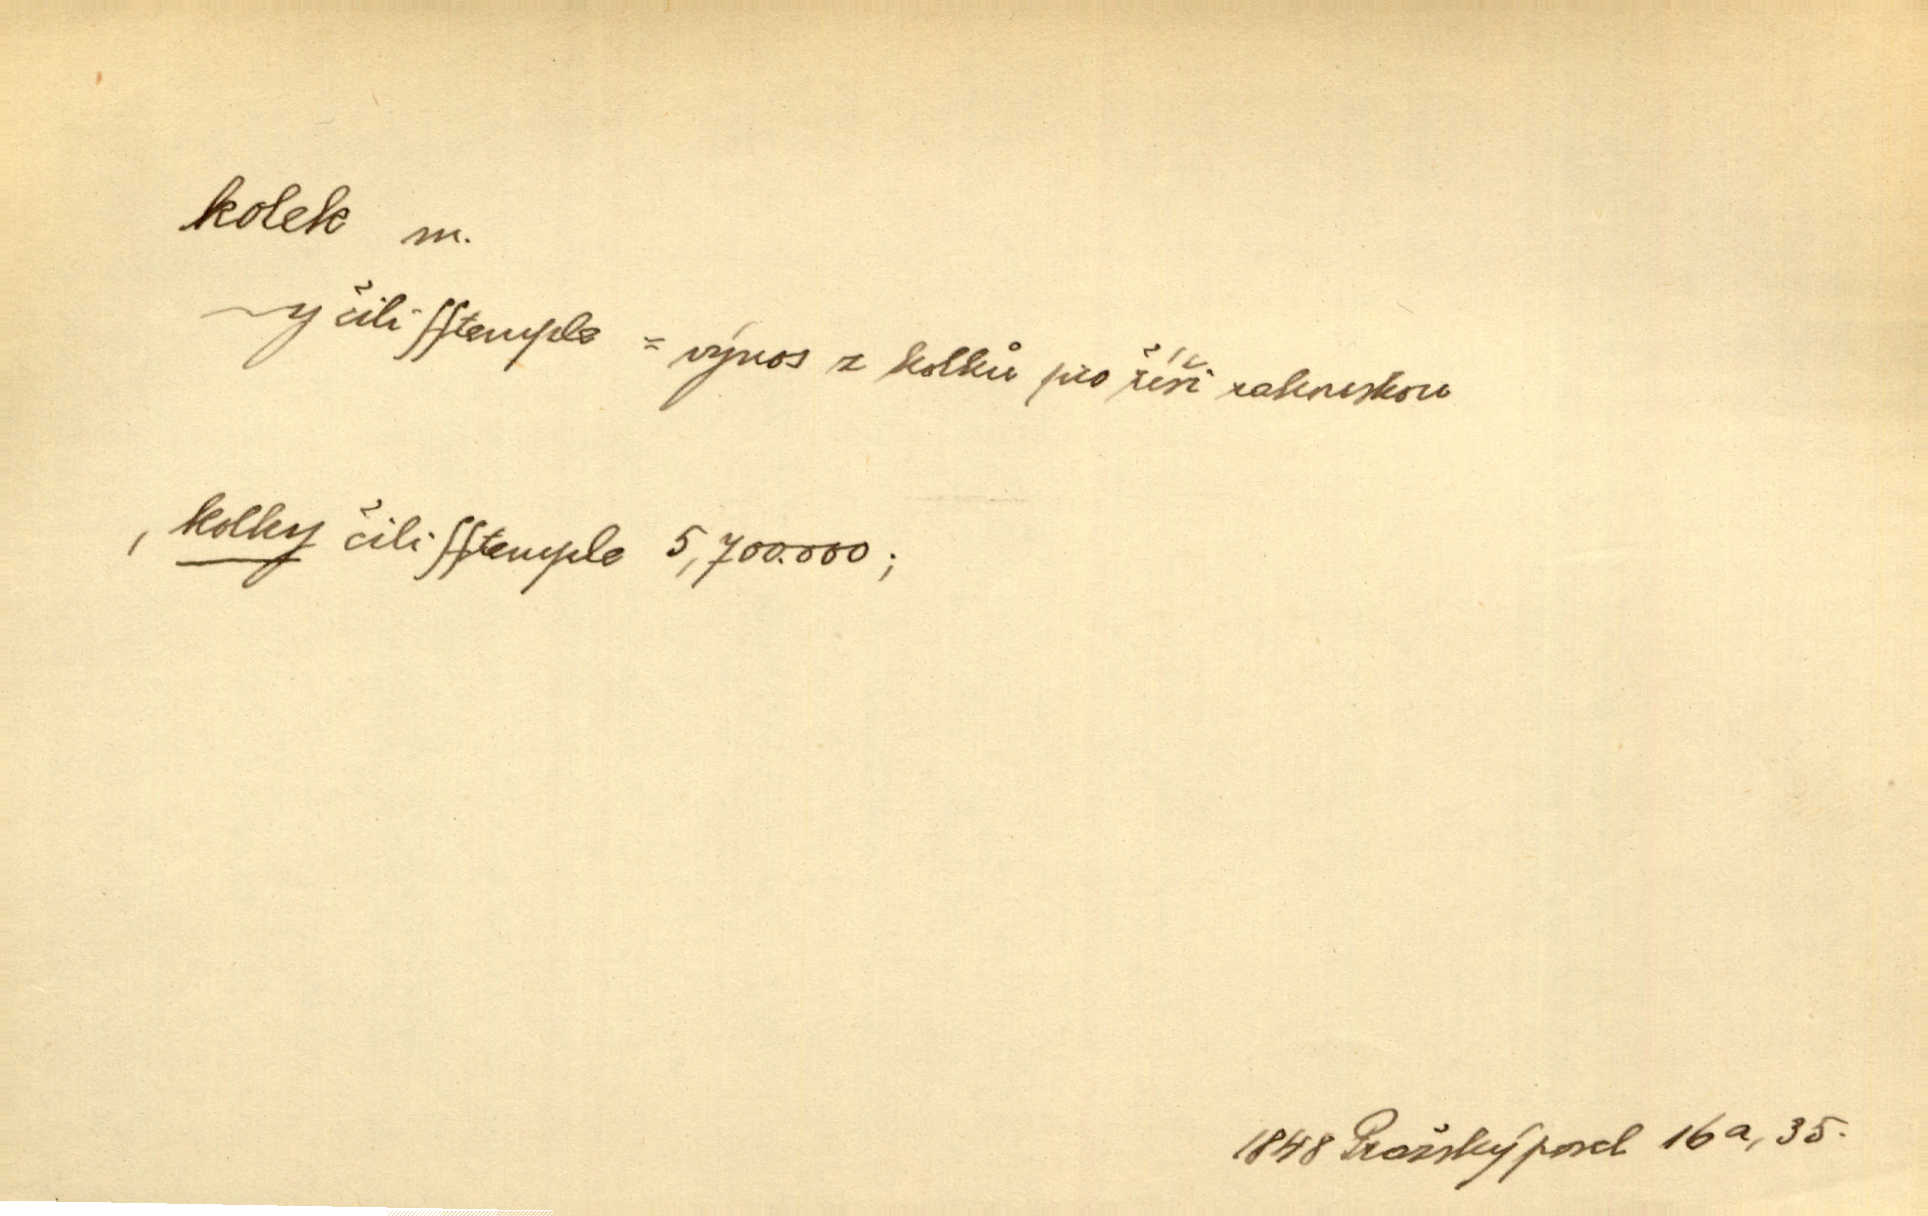 kolek m.
~y čili sstemple = výnos z kolků pro říši rakouskou
, kolky čili sstemple 5,700.000;
1848 Pražský posel 16a, 35.